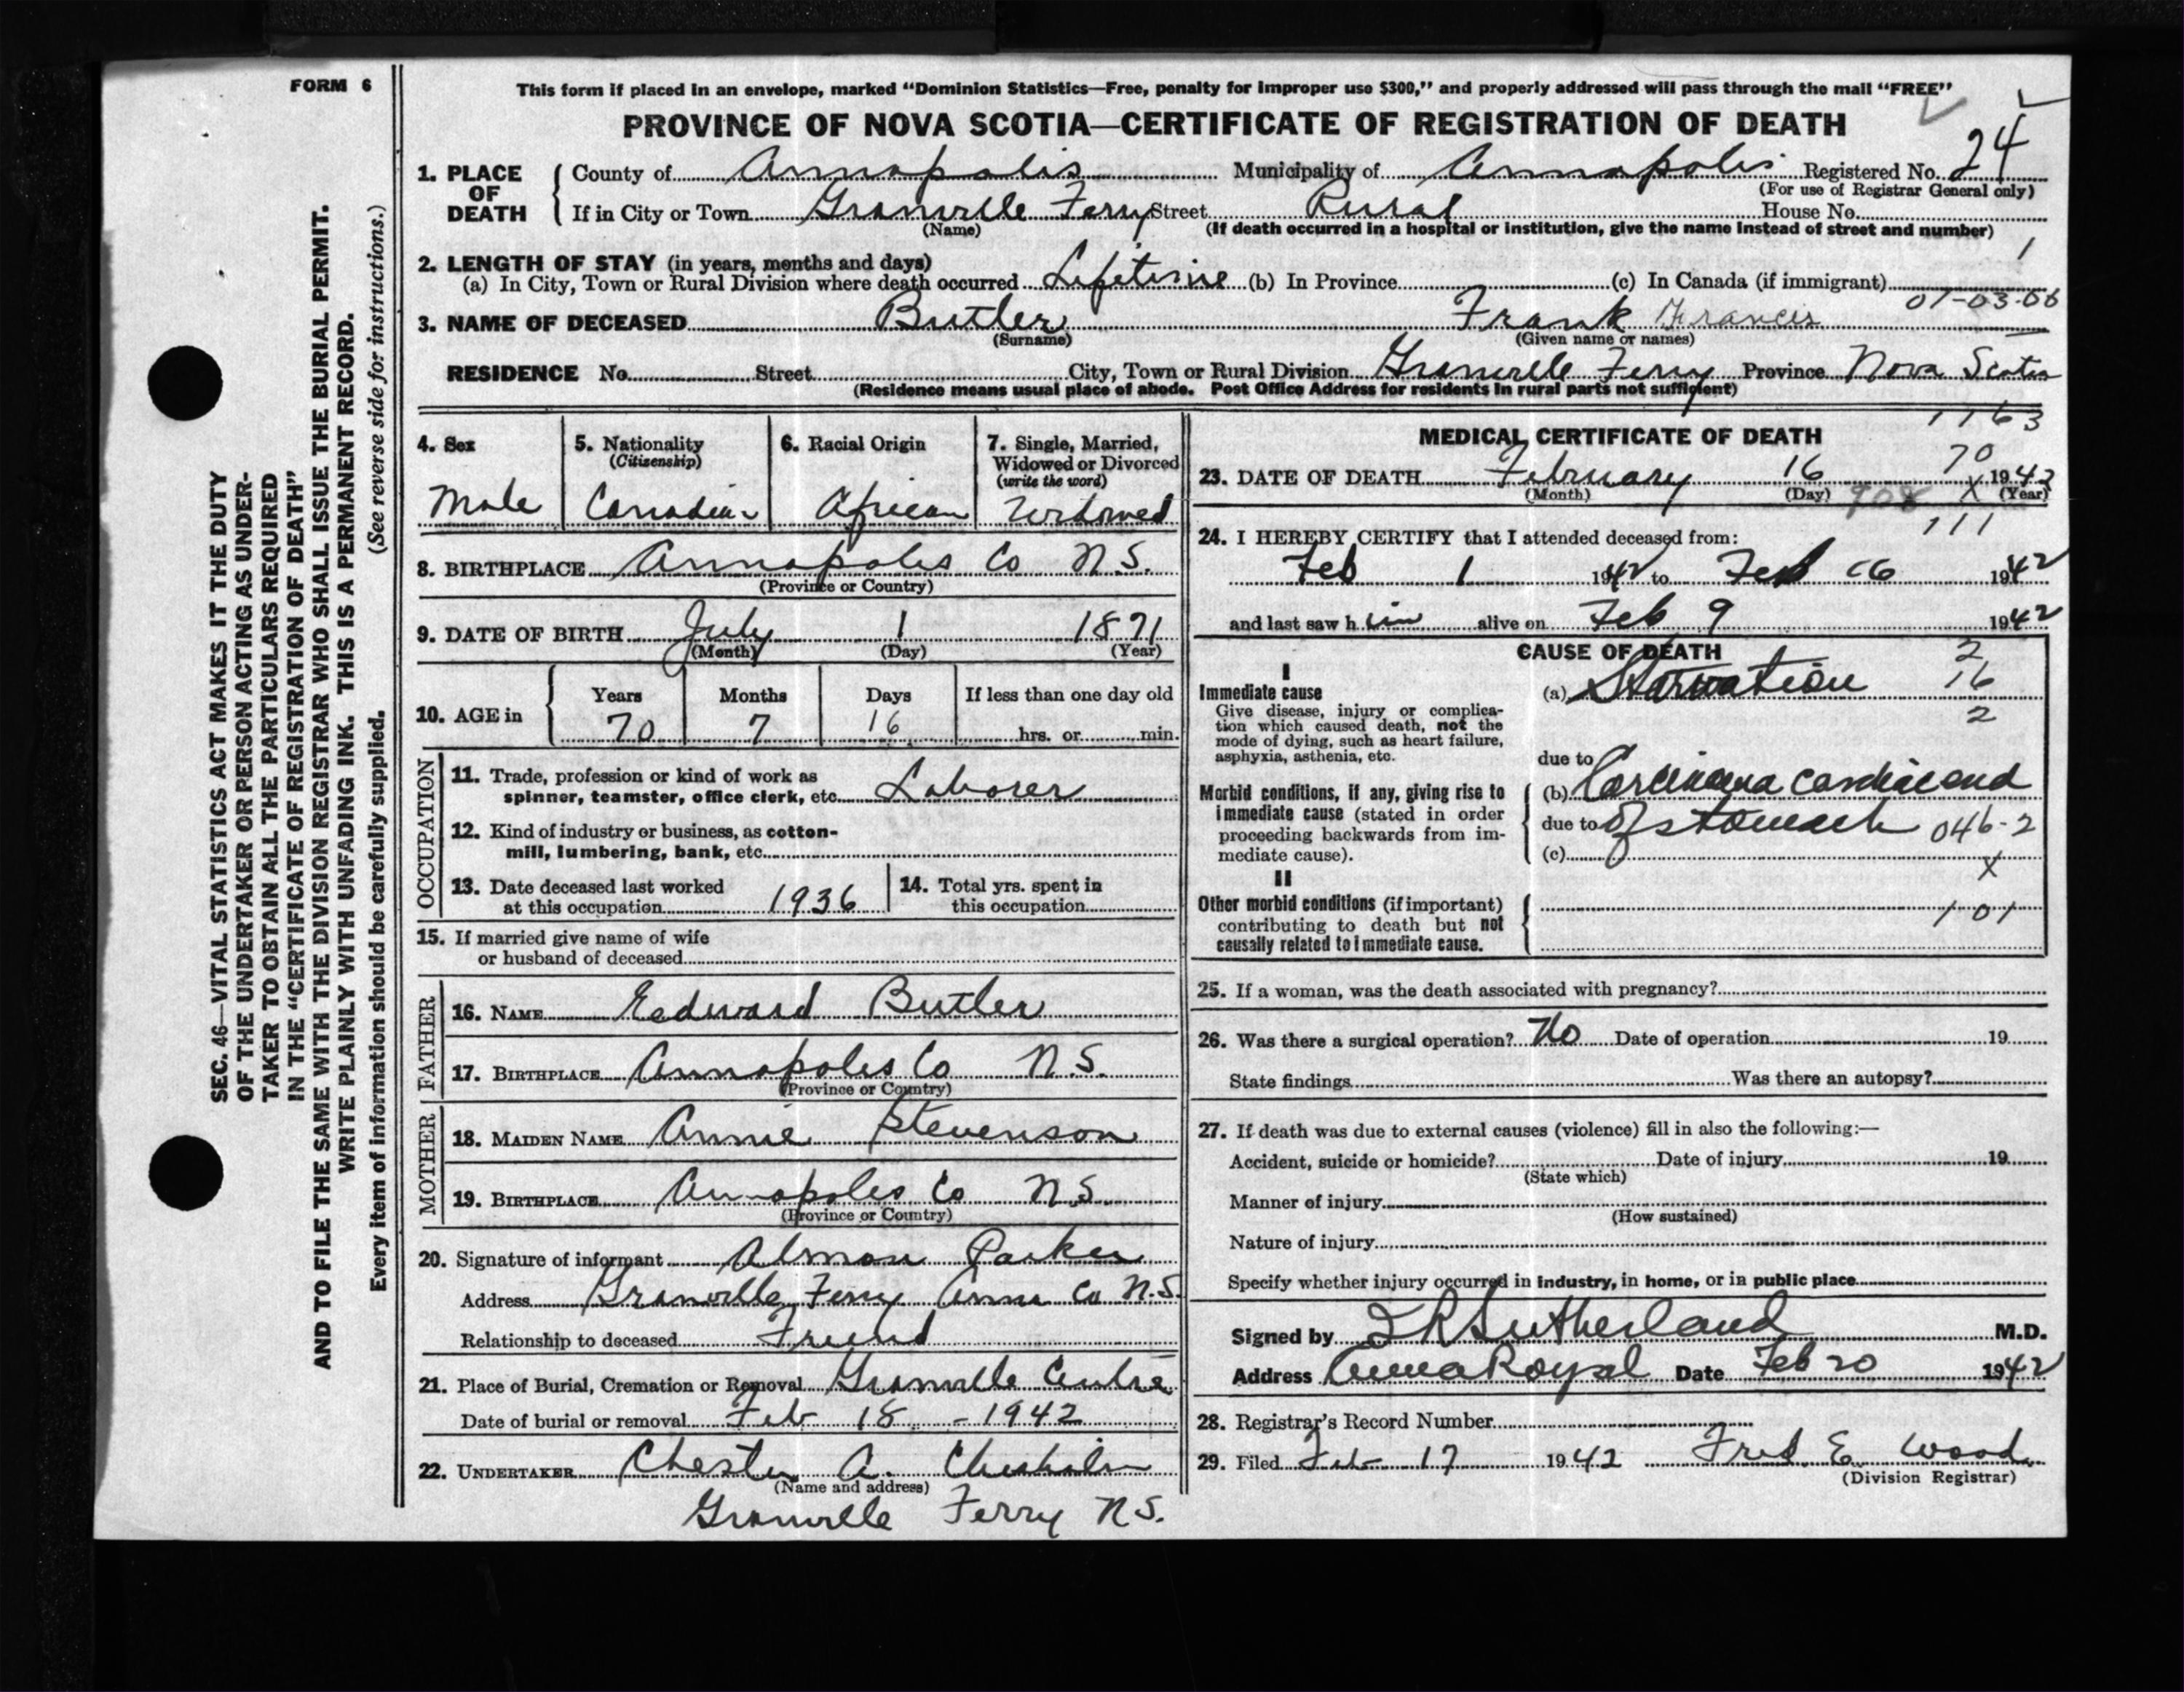 FORM 6
This form if placed in an envelope, marked "Dominion Statistics—Free, penalty for improper use $300," and properly addressed will pass through the mail "FREE"
PROVINCE OF NOVA SCOTIA—CERTIFICATE OF REGISTRATION OF DEATH
1. PLACE OF DEATH County of Annapolis Municipality of Annapolis Registered No. 24
(For use of Registrar General only)
If in City or Town Granville Ferry Street Rural House No.
(Name) (If death occurred in a hospital or institution, give the name instead of street and number)
1
2. LENGTH OF STAY (in years, months and days)
(a) In City, Town or Rural Division where death occurred Lifetime (b) In Province (c) In Canada (if immigrant)
01-03-06
3. NAME OF DECEASED Butler Frank Francis
(Surname) (Given name or names)
RESIDENCE No. Street City, Town or Rural Division Granville Ferry Province Nova Scotia
(Residence means usual place of abode. Post Office Address for residents in rural parts not sufficient)
4. Sex 5. Nationality 6. Racial Origin 7. Single, Married,
(Citizenship) Widowed or Divorced
(write the word)
Male Canadian African Widowed
8. BIRTHPLACE Annapolis Co N.S.
(Province or Country)
9. DATE OF BIRTH July 1 1871
(Month) (Day) (Year)
10. AGE in Years Months Days If less than one day old
70 7 16 hrs. or min.
OCCUPATION
11. Trade, profession or kind of work as
spinner, teamster, office clerk, etc. Laborer
12. Kind of industry or business, as cotton-
mill, lumbering, bank, etc.
13. Date deceased last worked
at this occupation 1936
14. Total yrs. spent in
this occupation
15. If married give name of wife
or husband of deceased
FATHER
16. NAME Eedward Butler
17. BIRTHPLACE Annapolis Co N.S.
(Province or Country)
MOTHER
18. MAIDEN NAME Annie Stevenson
19. BIRTHPLACE Annapolis Co N.S
(Province or Country)
20. Signature of informant Alman Parker
Address Granville Ferry Anna Co N.S.
Relationship to deceased Friend
21. Place of Burial, Cremation or Removal Granville Centre
Date of burial or removal Feb 18 - 1942
22. UNDERTAKER Chester A. Chisholm
(Name and address)
Granville Ferry N.S.
1163
MEDICAL CERTIFICATE OF DEATH
70
23. DATE OF DEATH February 16 1942
(Month) (Day) 908 X (Year)
111
24. I HEREBY CERTIFY that I attended deceased from:
Feb 1 1942 to Feb 16 1942
and last saw h im alive on Feb 9 1942
CAUSE OF DEATH 2
I
Immediate cause (a) Starvation 16
Give disease, injury or complica- 2
tion which caused death, not the
mode of dying, such as heart failure,
asphyxia, asthenia, etc. due to
Morbid conditions, if any, giving rise to (b) Carcinoma cardiac end
immediate cause (stated in order
proceeding backwards from im- due to of stomach 046-2
mediate cause). (c)
X
II
Other morbid conditions (if important) 101
contributing to death but not
causally related to immediate cause.
25. If a woman, was the death associated with pregnancy?
26. Was there a surgical operation? No Date of operation 19
State findings Was there an autopsy?
27. If death was due to external causes (violence) fill in also the following:—
Accident, suicide or homicide? Date of injury 19
(State which)
Manner of injury
(How sustained)
Nature of injury
Specify whether injury occurred in industry, in home, or in public place
Signed by Sutherland M.D.
Address Anna Royal Date Feb 20 1942
28. Registrar's Record Number
29. Filed Feb 17 1942 Fred. E. Wood
(Division Registrar)
SEC. 46—VITAL STATISTICS ACT MAKES IT THE DUTY
OF THE UNDERTAKER OR PERSON ACTING AS UNDER-
TAKER TO OBTAIN ALL THE PARTICULARS REQUIRED
IN THE "CERTIFICATE OF REGISTRATION OF DEATH"
AND TO FILE THE SAME WITH THE DIVISION REGISTRAR WHO SHALL ISSUE THE BURIAL PERMIT.
WRITE PLAINLY WITH UNFADING INK. THIS IS A PERMANENT RECORD.
Every item of information should be carefully supplied. (See reverse side for instructions.)